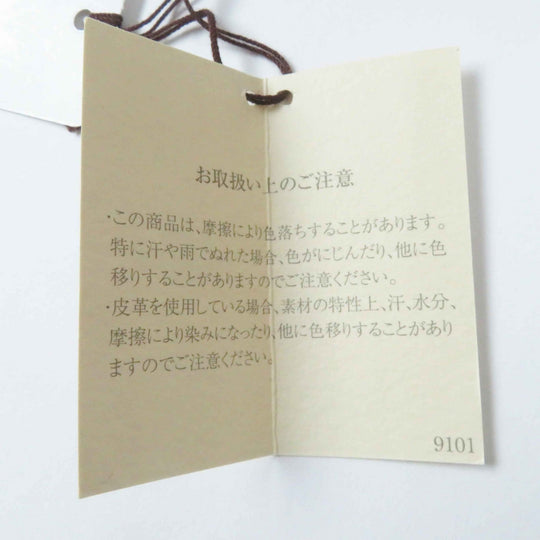 お取扱い上のご注意
・この商品は、摩擦により色落ちすることがあります。
特に汗や雨でぬれた場合、色がにじんだり、他に色
移りすることがありますのでご注意ください。
・皮革を使用している場合、素材の特性上、汗、水分、
摩擦により染みになったり、他に色移りすることがあり
ますのでご注意ください。
9101